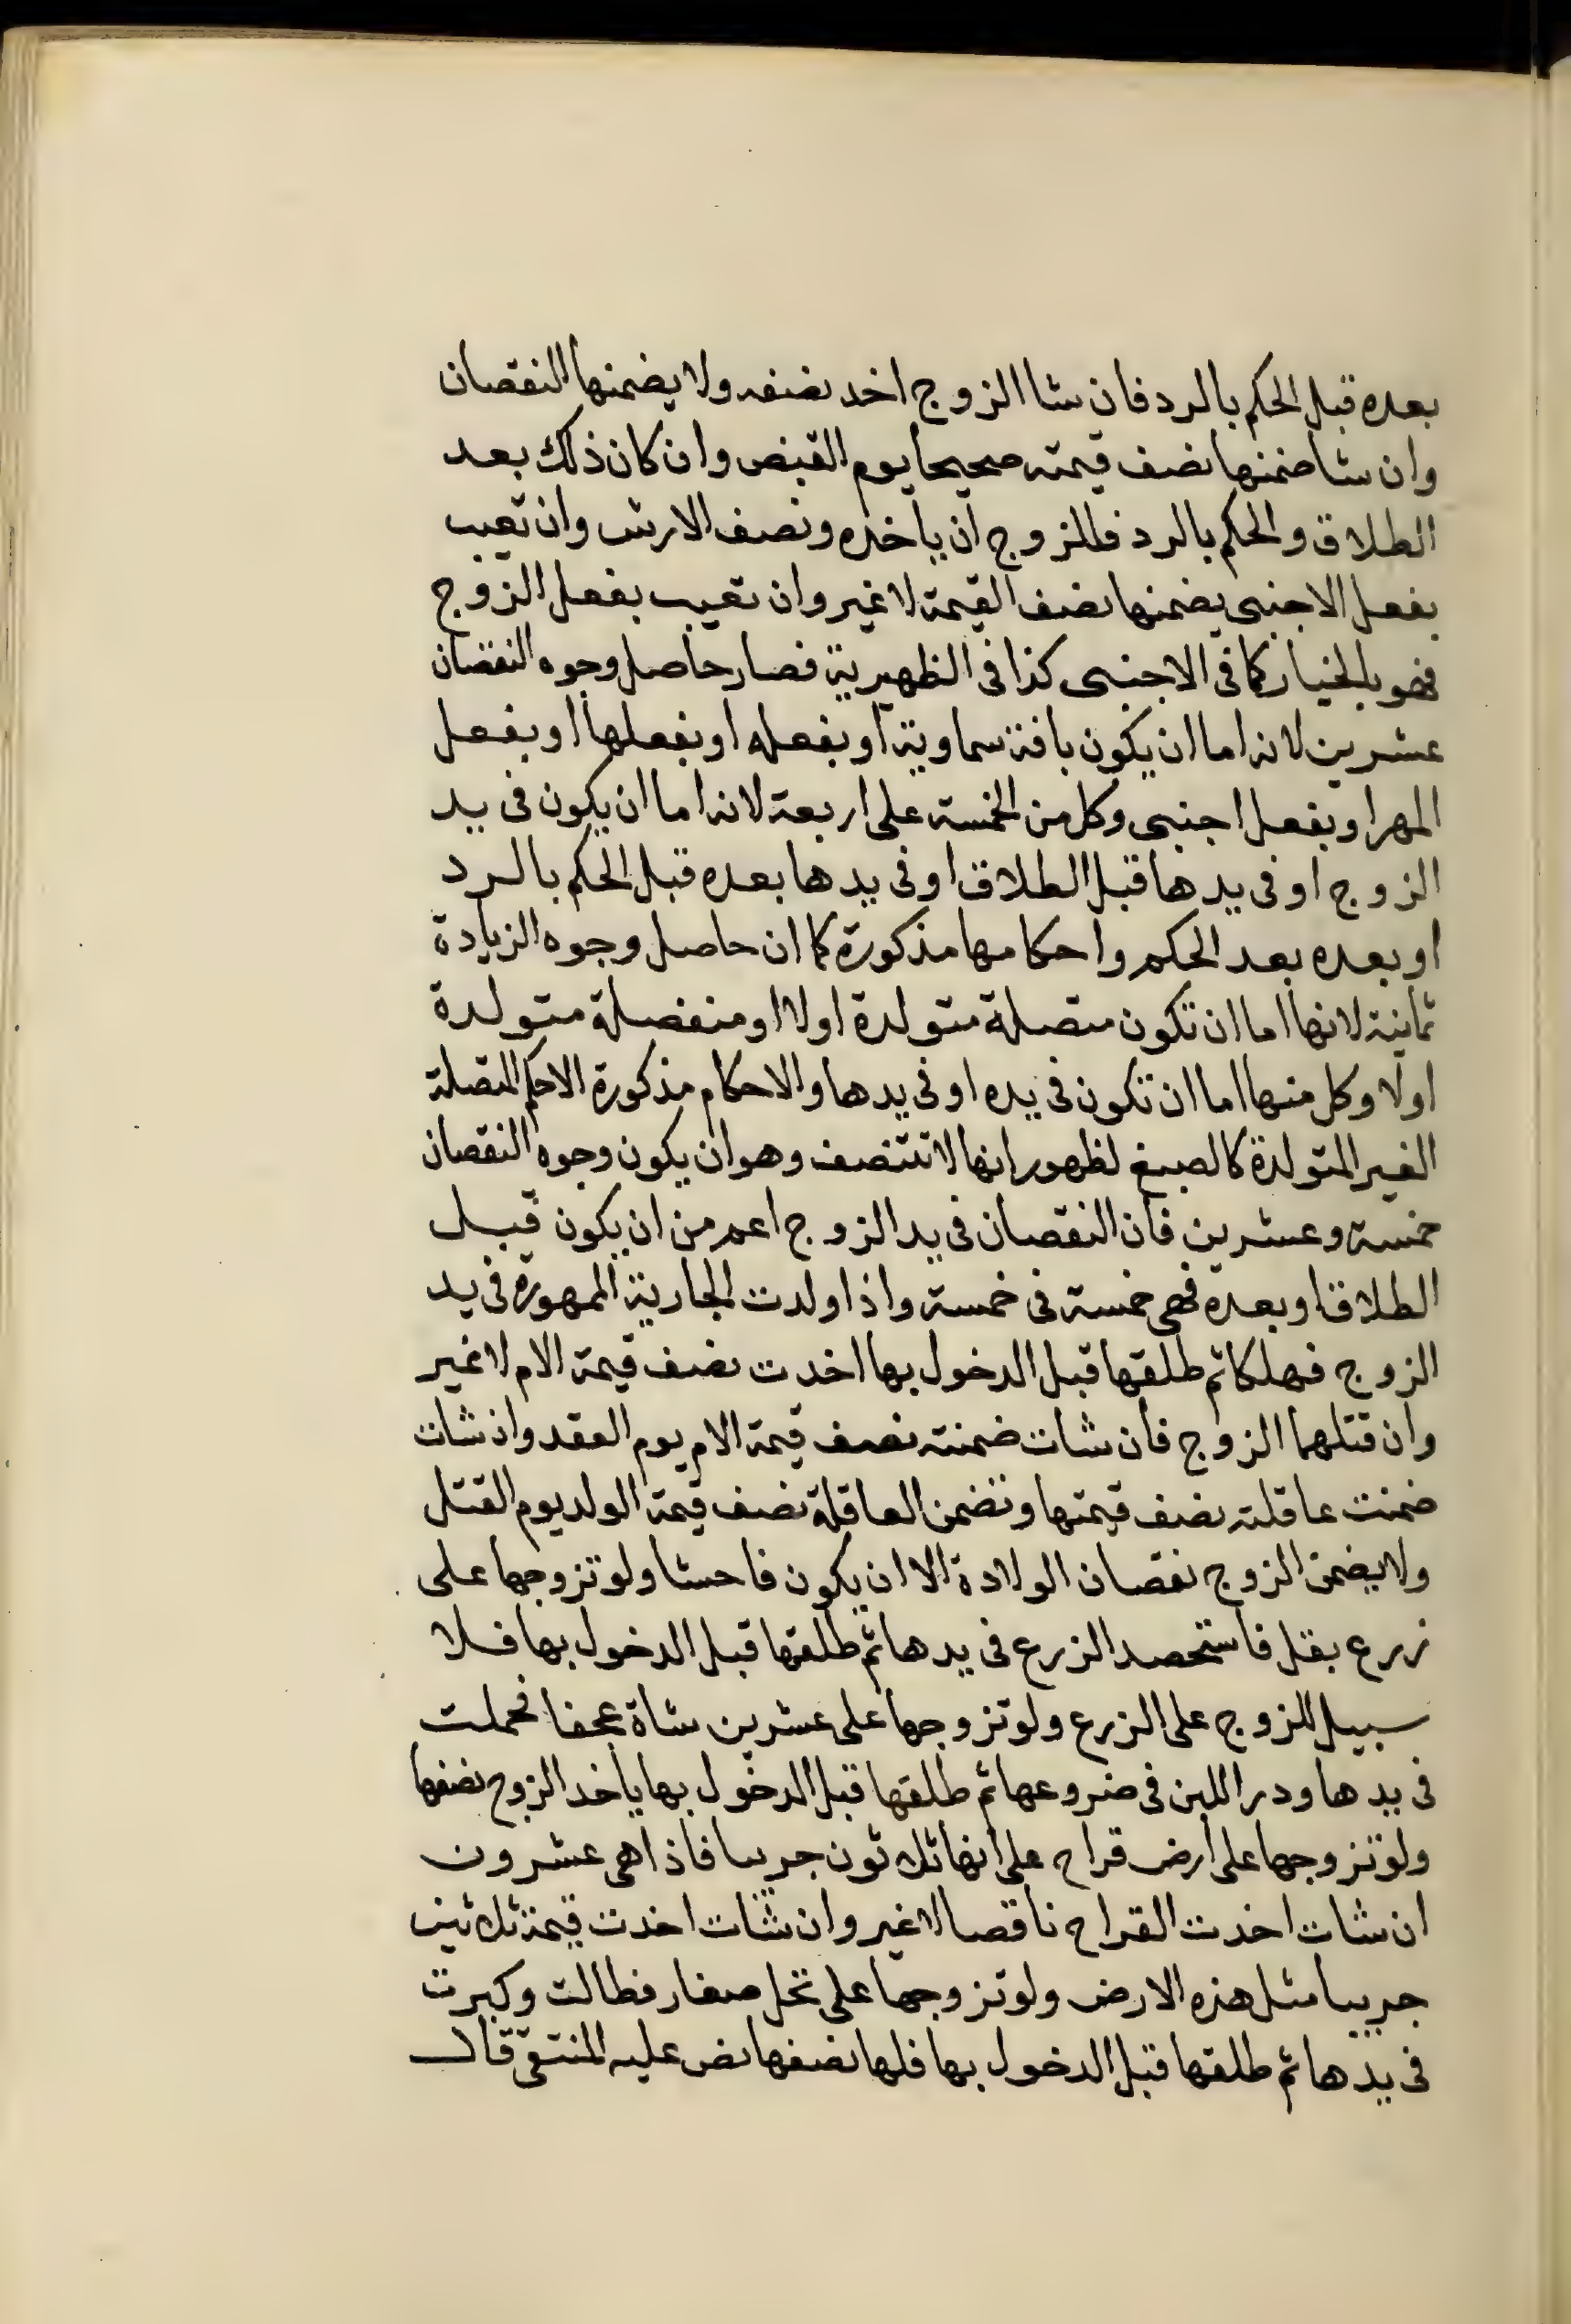 بعده قبل الحكم بالرد فان شا الزوج اخد نصفه ولا يضمنها النقصان
وان شا ضمنها نصف قيمته صحيحا يوم القبض وان كان ذلك بعد
الطلاق والحكم بالرد فللزوج ان ياخذه ونصف الارش وان تعيب
بفعل الاجنبى يضمنها نصف القيمة لا غير وان تعيب بفعل الزوج
فهو بالخيار كما فى الاجنبى كذا فى الظهيرية فصار حاصل وجوه النقصان
عشرين لانه اما ان يكون بافة سماوية او بفعله او بفعلها او بفعل
المهر او بفعل اجنبى وكل من الخمسة على اربعة لانه اما ان يكون فى يد
الزوج او فى يدها قبل الطلاق او فى يدها بعده قبل الحكم بالرد
او بعده بعد الحكم واحكامها مذكورة كما ان حاصل وجوه الزيادة
ثمانية لانها اما ان تكون متصلة متولدة اولا او منفصلة متولدة
اولا وكل منها اما ان تكون فى يده او فى يدها والاحكام مذكورة الاحكم المتصلة
الغير المتولدة كالصبغ لظهور انها لا تتنصف وهو ان يكون وجوه النقصان
خمسة وعشرين فان النقصان فى يد الزوج اعم من ان يكون قبل
الطلاق او بعده فهى خمسة فى خمسة واذا ولدت الجارية الممهورة فى يد
الزوج فهلكا ثم طلقها قبل الدخول بها اخدت نصف قيمة الام لا غير
وان قتلهما الزوج فان شات ضمنته نصف قيمة الام يوم العقد وان شات
ضمنت عاقلته نصف قيمتها وتضمن العاقلة نصف قيمة الولد يوم القتل
ولا يضمن الزوج نقصان الولادة الا ان يكون فاحشا ولو تزوجها على
زرع بقل فاستحصد الزرع فى يدها ثم طلقها قبل الدخول بها فلا
سبيل للزوج على الزرع ولو تزوجها على عشرين شاة عجفا فحملت
فى يدها ودر اللبن فى ضروعها ثم طلقها قبل الدخول بها ياخد الزوج نصفها
ولو تزوجها على ارض قراح على انها ثلاثون جريبا فاذا هى عشرون
ان شات اخدت القراح ناقصا لا غير وان شات اخدت قيمة ثلاثين
جريبا مثل هذه الارض ولو تزوجها على نخل صغار فطالت وكبرت
فى يدها ثم طلقها قبل الدخول بها فلها نصفها نص عليه المنتقى قال